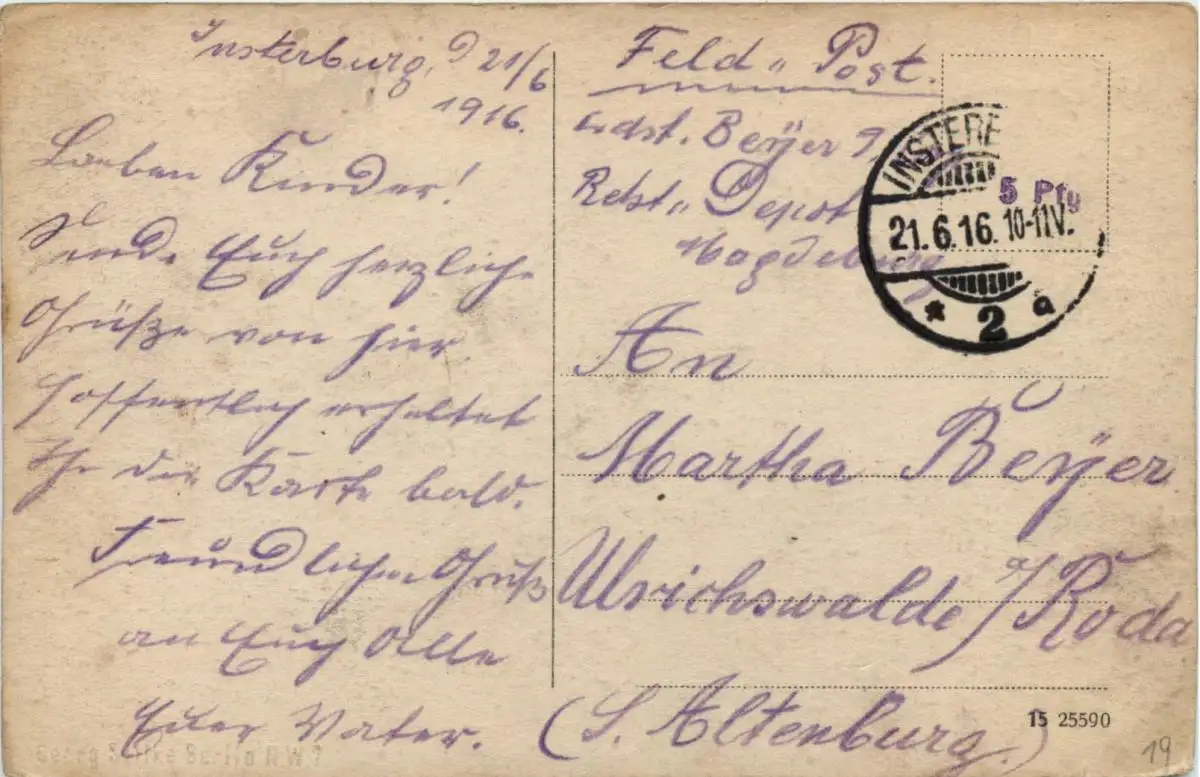 Insterburg, d 21/6
1916.
Lieben Kinder!
Sende Euch herzliche
Grüße von hier.
Hoffentlich erhaltet
Ihr die Karte bald.
Freundlichen Gruß
an Euch Alle
Euer Vater.
Georg Stilke Berlin N W 7
Feld„ Post.
Ldst. Beyer 9
Rekst„ Depot
Magdeburg
INSTERB
5 Pfg
21.6.16. 10-11V.
* 2 a
An
Martha Beyer
Ulrichswalde / Roda
(S. Altenburg.)
15 25590
19